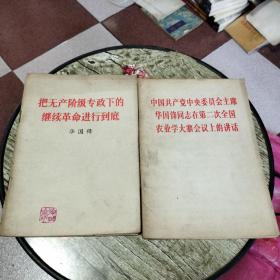 把无产阶级专政下的
继续革命进行到底
华国锋
中国共产党中央委员会主席
华国锋同志在第二次全国
农业学大寨会议上的讲话